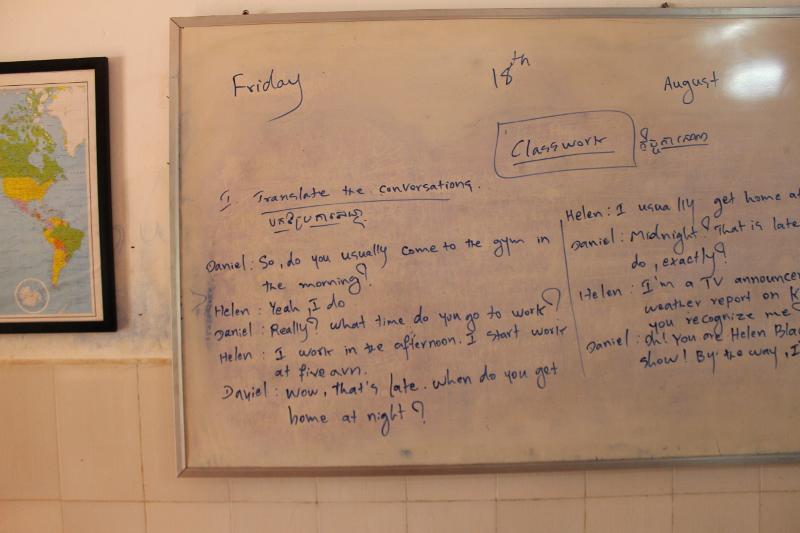 Friday 18th August
Classwork
I Translate the conversations.
Daniel: So, do you usually come to the gym in
the morning?
Helen: Yeah I do
Daniel: Really? what time do you go to work?
Helen: I work in the afternoon. I start work
at five
Daniel: Wow, That's late. When do you get
home at night?
Helen: I usually get home at
Daniel: Midnight? That is late
do, exactly?
Helen: I'm a TV announcer
weather report on K
you recognize me?
Daniel: Oh! You are Helen Bla
show! By the way, I